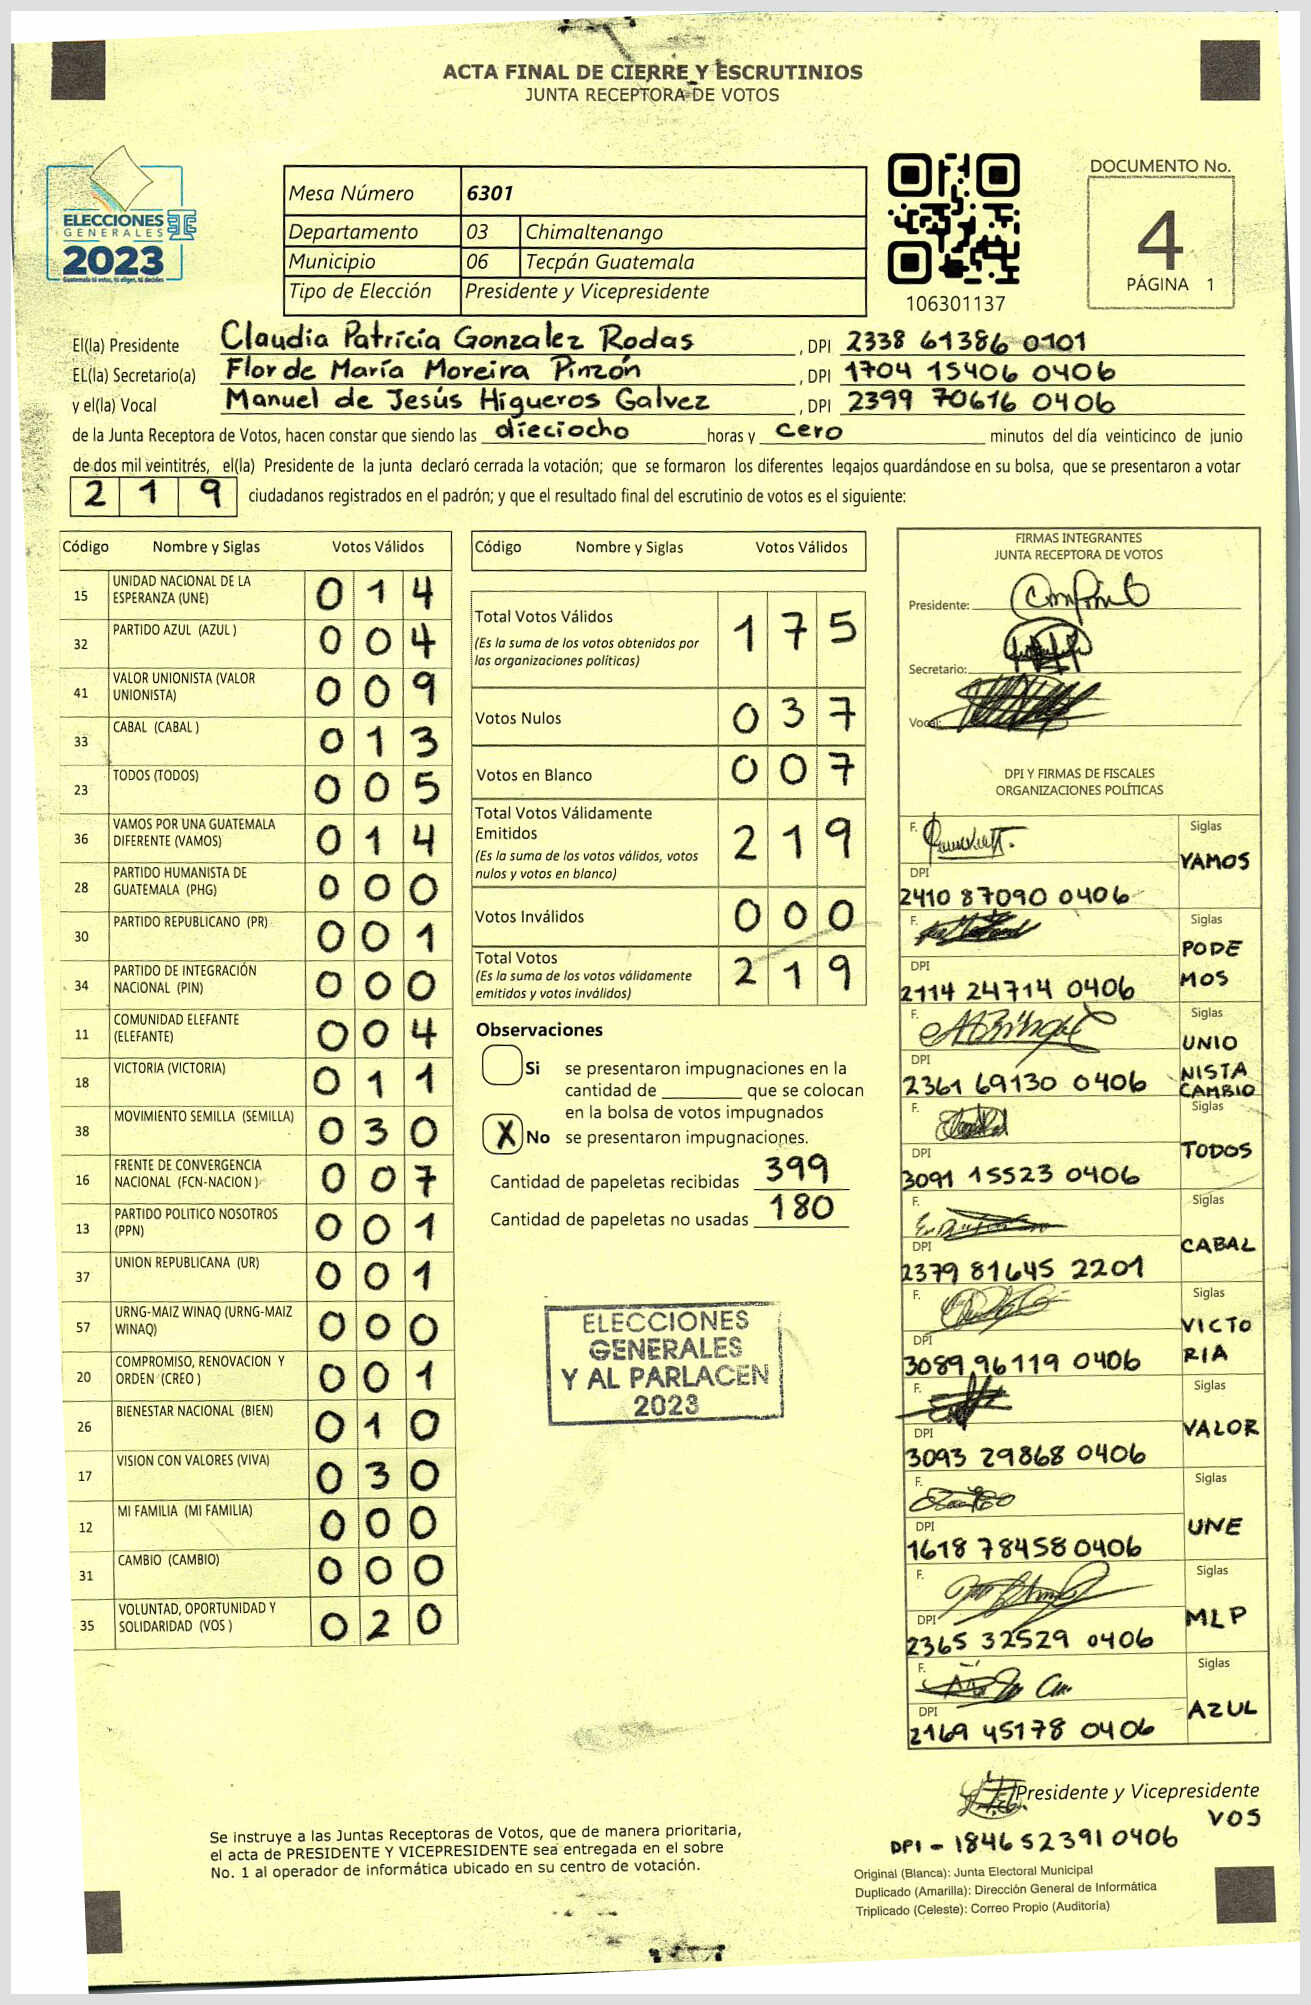 ACTA FINAL DE CIERRE Y ESCRUTINIOS
JUNTA RECEPTORA DE VOTOS
ELECCIONES
GENERALES
2023
Guatemala tú votas, tú eliges, tú decides
Mesa Número 6301
Departamento 03 Chimaltenango
Municipio 06 Tecpán Guatemala
Tipo de Elección Presidente y Vicepresidente
106301137
DOCUMENTO No.
4
PÁGINA 1
El(la) Presidente Claudia Patricia Gonzalez Rodas, DPI 2338 61386 0101
EL(la) Secretario(a) Flor de María Moreira Pinzón, DPI 1704 15406 0406
y el(la) Vocal Manuel de Jesús Higueros Galvez, DPI 2399 70616 0406
de la Junta Receptora de Votos, hacen constar que siendo las dieciocho horas y cero minutos del día veinticinco de junio
de dos mil veintitrés, el(la) Presidente de la junta declaró cerrada la votación; que se formaron los diferentes legajos guardándose en su bolsa, que se presentaron a votar
219 ciudadanos registrados en el padrón; y que el resultado final del escrutinio de votos es el siguiente:
Código Nombre y Siglas Votos Válidos
15 UNIDAD NACIONAL DE LA ESPERANZA (UNE) 014
32 PARTIDO AZUL (AZUL ) 004
41 VALOR UNIONISTA (VALOR UNIONISTA) 009
33 CABAL (CABAL ) 013
23 TODOS (TODOS) 005
36 VAMOS POR UNA GUATEMALA DIFERENTE (VAMOS) 014
28 PARTIDO HUMANISTA DE GUATEMALA (PHG) 000
30 PARTIDO REPUBLICANO (PR) 001
34 PARTIDO DE INTEGRACIÓN NACIONAL (PIN) 000
11 COMUNIDAD ELEFANTE (ELEFANTE) 004
18 VICTORIA (VICTORIA) 011
38 MOVIMIENTO SEMILLA (SEMILLA) 030
16 FRENTE DE CONVERGENCIA NACIONAL (FCN-NACION ) 007
13 PARTIDO POLITICO NOSOTROS (PPN) 001
37 UNION REPUBLICANA (UR) 001
57 URNG-MAIZ WINAQ (URNG-MAIZ WINAQ) 000
20 COMPROMISO, RENOVACION Y ORDEN (CREO ) 001
26 BIENESTAR NACIONAL (BIEN) 010
17 VISION CON VALORES (VIVA) 030
12 MI FAMILIA (MI FAMILIA) 000
31 CAMBIO (CAMBIO) 000
35 VOLUNTAD, OPORTUNIDAD Y SOLIDARIDAD (VOS ) 020
Código Nombre y Siglas Votos Válidos
Total Votos Válidos 175
(Es la suma de los votos obtenidos por
las organizaciones políticas)
Votos Nulos 037
Votos en Blanco 007
Total Votos Válidamente
Emitidos 219
(Es la suma de los votos válidos, votos
nulos y votos en blanco)
Votos Inválidos 000
Total Votos 219
(Es la suma de los votos válidamente
emitidos y votos inválidos)
Observaciones
Si se presentaron impugnaciones en la
cantidad de ________ que se colocan
en la bolsa de votos impugnados
X No se presentaron impugnaciones.
Cantidad de papeletas recibidas 399
Cantidad de papeletas no usadas 180
ELECCIONES
GENERALES
Y AL PARLACEN
2023
FIRMAS INTEGRANTES
JUNTA RECEPTORA DE VOTOS
Presidente:
Secretario:
Vocal:
DPI Y FIRMAS DE FISCALES
ORGANIZACIONES POLÍTICAS
F. Siglas
VAMOS
DPI
2410 87090 0406
F. Siglas
PODE
MOS
DPI
2114 24714 0406
F. Siglas
UNIO
NISTA
CAMBIO
DPI
2361 69130 0406
F. Siglas
TODOS
DPI
3091 15523 0406
F. Siglas
CABAL
DPI
2379 81645 2201
F. Siglas
VICTO
RIA
DPI
3089 96119 0406
F. Siglas
VALOR
DPI
3093 29868 0406
F. Siglas
UNE
DPI
1618 78458 0406
F. Siglas
MLP
DPI
2365 32529 0406
F. Siglas
AZUL
DPI
2169 45178 0406
Presidente y Vicepresidente
VOS
DPI - 1846 52391 0406
Se instruye a las Juntas Receptoras de Votos, que de manera prioritaria,
el acta de PRESIDENTE Y VICEPRESIDENTE sea entregada en el sobre
No. 1 al operador de informática ubicado en su centro de votación.
Original (Blanca): Junta Electoral Municipal
Duplicado (Amarilla): Dirección General de Informática
Triplicado (Celeste): Correo Propio (Auditoría)